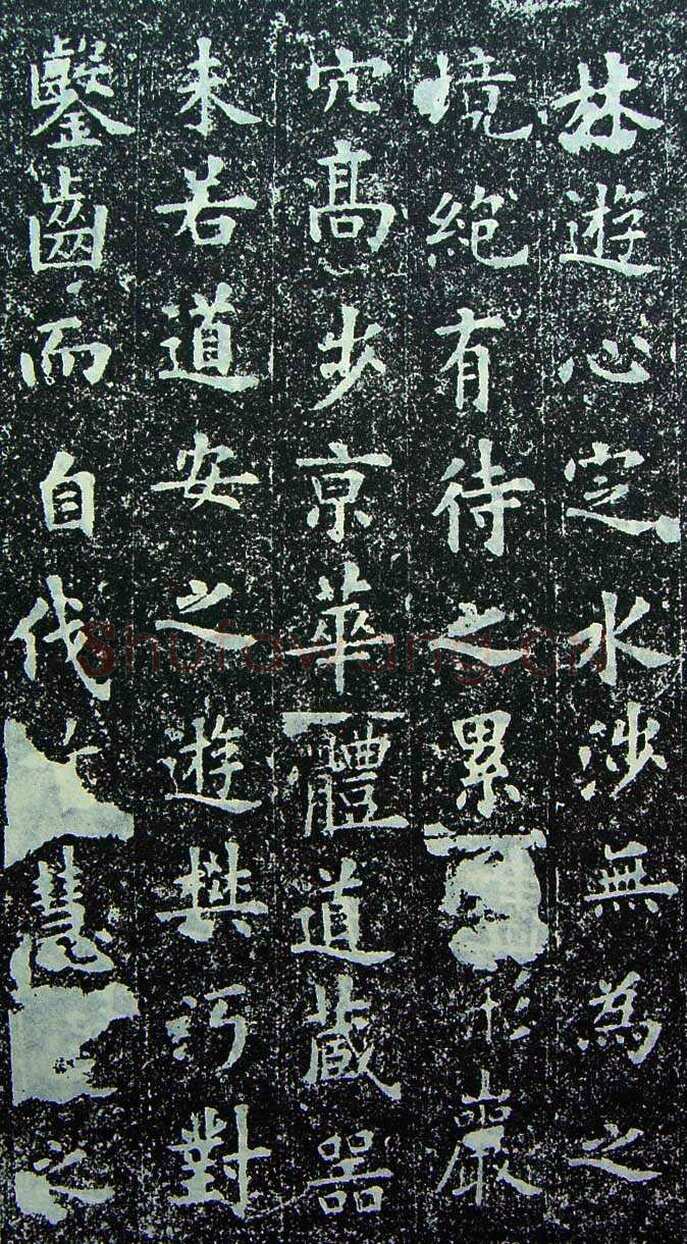 林遊心定水涉無為之
境絕有待之累形巖
穴高步京華體道藏器
未若道安之遊樊沔對
鑿齒而自伐慧之
Shufawang.cn